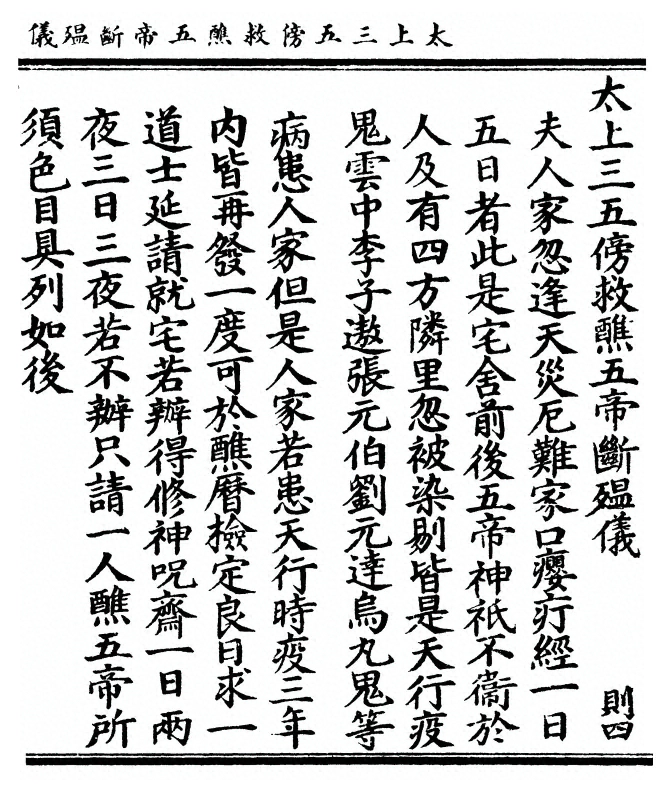 太上三五傍救醮五帝斷殟儀
太上三五傍救醮五帝斷殟儀 則四
夫人家忽逢天災厄難家口癭疔經一日
五日者此是宅舍前後五帝神祇不衞於
人及有四方隣里忽被染剔皆是天行疫
鬼雲中李子遨張元伯劉元達烏丸鬼等
病患人家但是人家若患天行時疫三年
内皆再發一度可於醮曆檢定良日求一
道士延請就宅若辦得修神呪齋一日兩
夜三日三夜若不辦只請一人醮五帝所
須色目具列如後